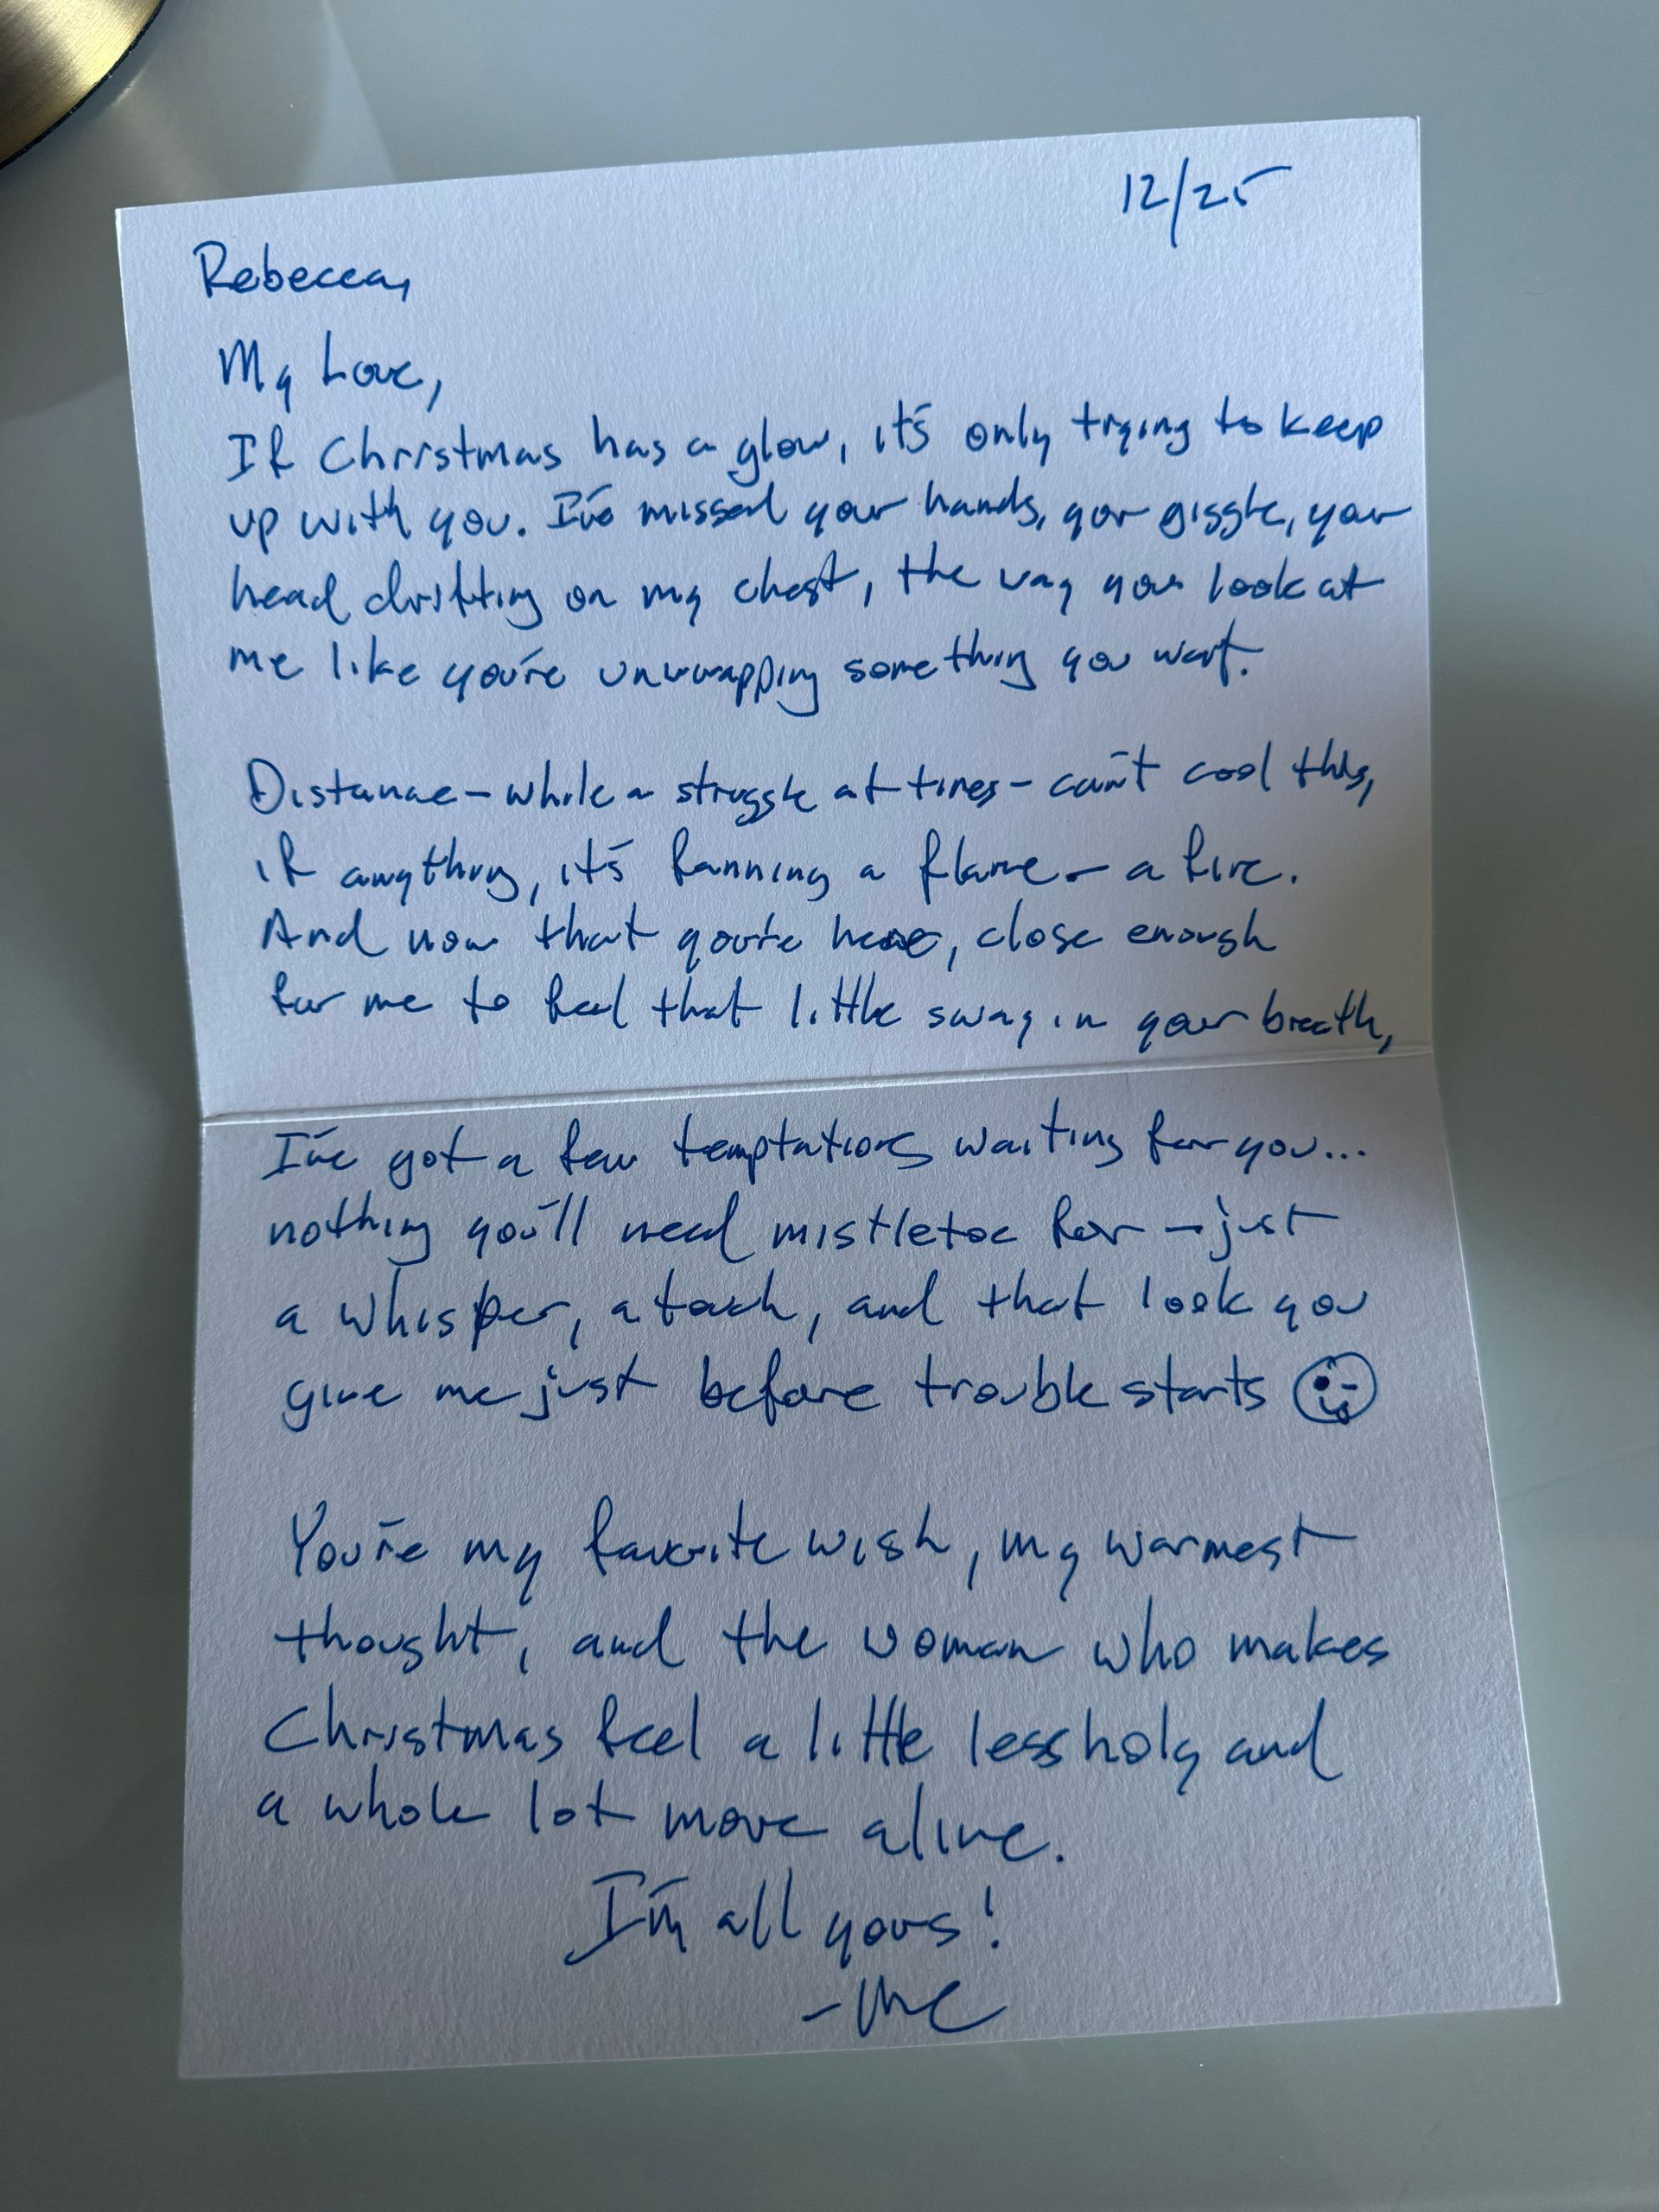 12/25
Rebecca,
My Love,
If Christmas has a glow, it's only trying to keep
up with you. I've missed your hands, your giggle, your
head drifting on my chest, the way you look at
me like you're unwrapping something you want.
Distance - while a struggle at times - can't cool this,
if anything, it's fanning a flame - a fire.
And now that you're here, close enough
for me to feel that little sway in your breath,
I've got a few temptations waiting for you...
nothing you'll need mistletoe for - just
a whisper, a touch, and that look you
give me just before trouble starts
You're my favorite wish, my warmest
thought, and the woman who makes
Christmas feel a little less holy and
a whole lot more alive.
I'm all yours!
- Me